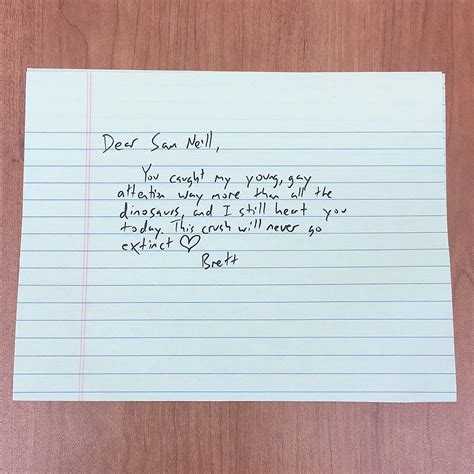 Dear Sam Neill,
You caught my young, gay
attention way more than all the
dinosaurs, and I still heart you
today. This crush will never go
extinct ♡
Brett